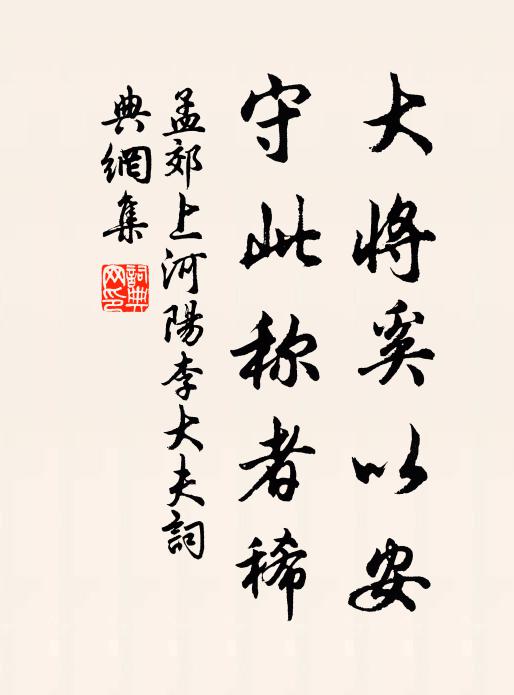 大将奚以安
守此称者稀
孟郊上河陽李大夫詞
典網集
詞典网印